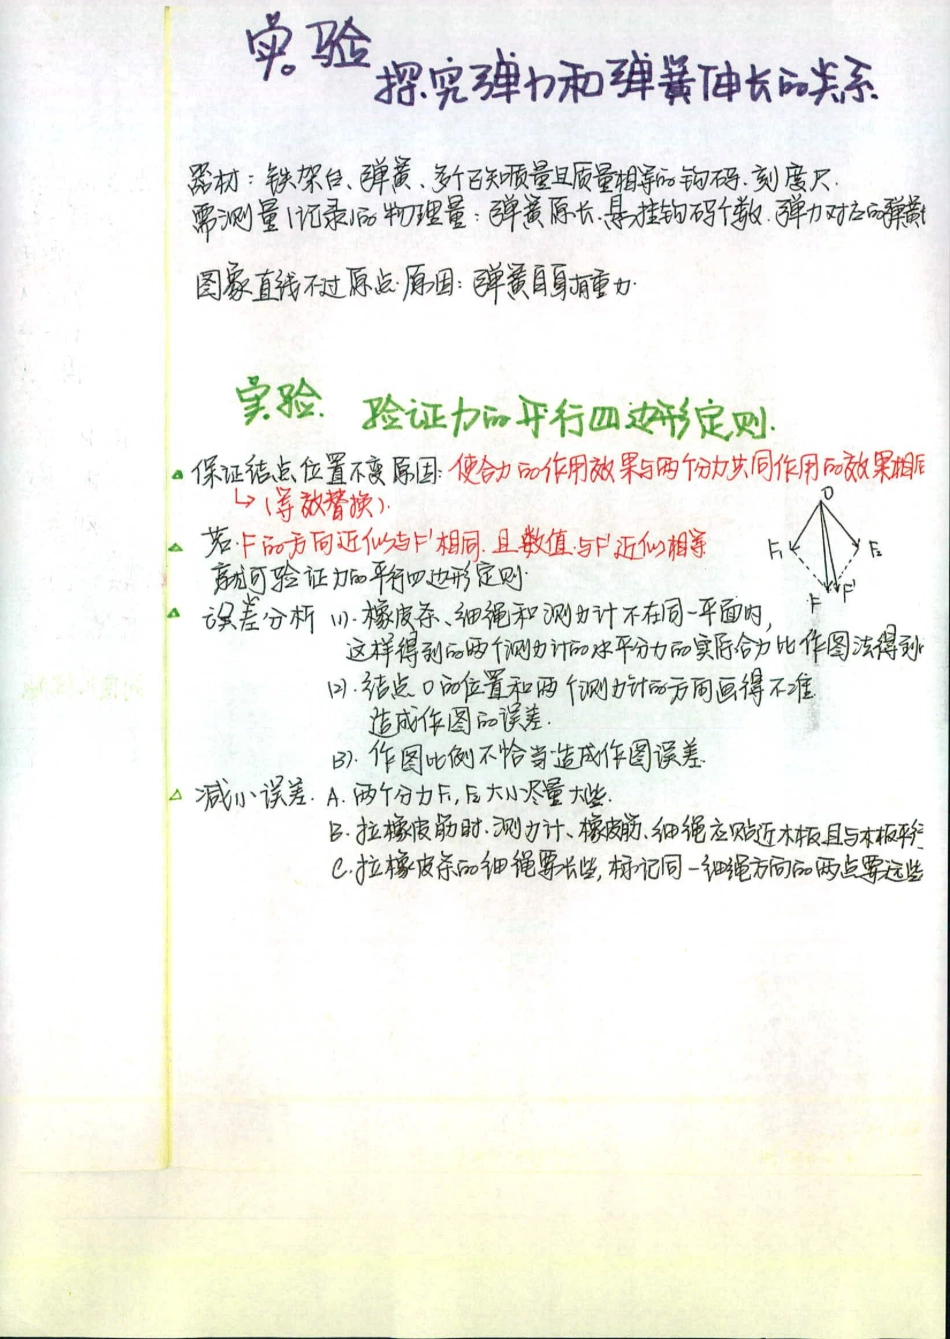 实验
探究弹力和弹簧伸长的关系
器材：铁架台、弹簧、多个已知质量且质量相等的钩码、刻度尺.
需测量(记录)的物理量：弹簧原长、悬挂钩码个数、弹力对应的弹簧
图象直线不过原点原因：弹簧自身有重力.
实验. 验证力的平行四边形定则.
保证结点位置不变原因：使合力的作用效果与两个分力共同作用的效果相
↳(等效替换).
O
若F的方向近似与F'相同.且数值与F'近似相等
F₁ F₂
就可验证力的平行四边形定则.
F F'
误差分析 (1).橡皮条、细绳和测力计不在同一平面内,
这样得到的两个测力计的水平分力的实际合力比作图法得到
(2).结点O的位置和两个测力计的方向画得不准
造成作图的误差.
(3).作图比例不恰当造成作图误差.
减小误差. A.两个分力F₁,F₂大小尽量大些.
B.拉橡皮筋时.测力计、橡皮筋、细绳应贴近木板且与木板平
C.拉橡皮条的细绳要长些,标记同一细绳方向的两点要远些